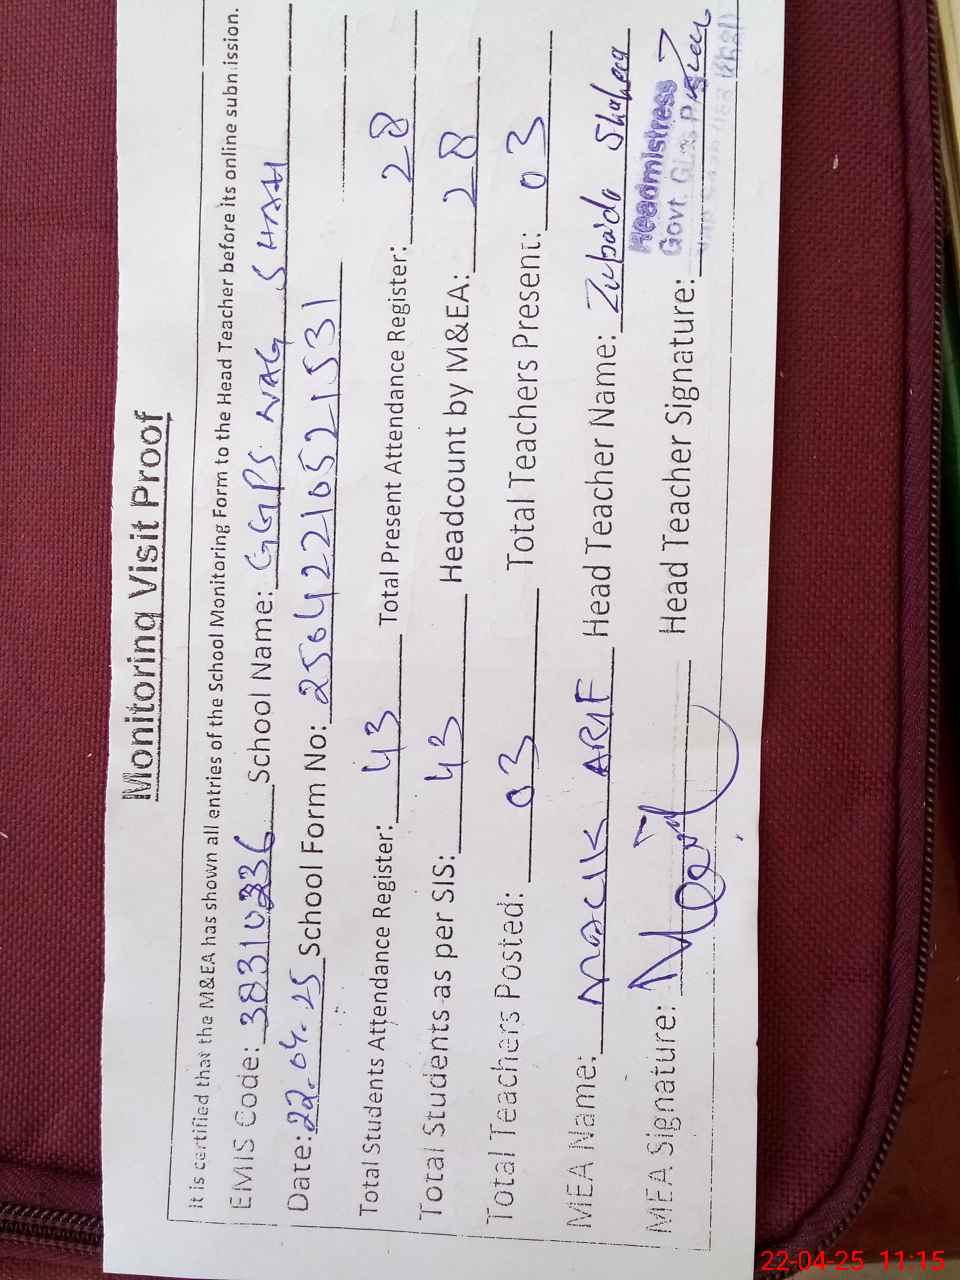 Monitoring Visit Proof
It is certified that the M&EA has shown all entries of the School Monitoring Form to the Head Teacher before its online submission.
EMIS Code: 38310336 School Name: GGPS NAG SHAH
Date: 22-04-25 School Form No: 25042210521531
Total Students Attendance Register: 43 Total Present Attendance Register: 28
Total Students as per SIS: 43 Headcount by M&EA: 28
Total Teachers Posted: 03 Total Teachers Present: 03
MEA Name: MALIK ARIF Head Teacher Name: Zubaida Shaheen
MEA Signature: Head Teacher Signature:
Headmistress
Govt. Girls
22-04-25 11:15